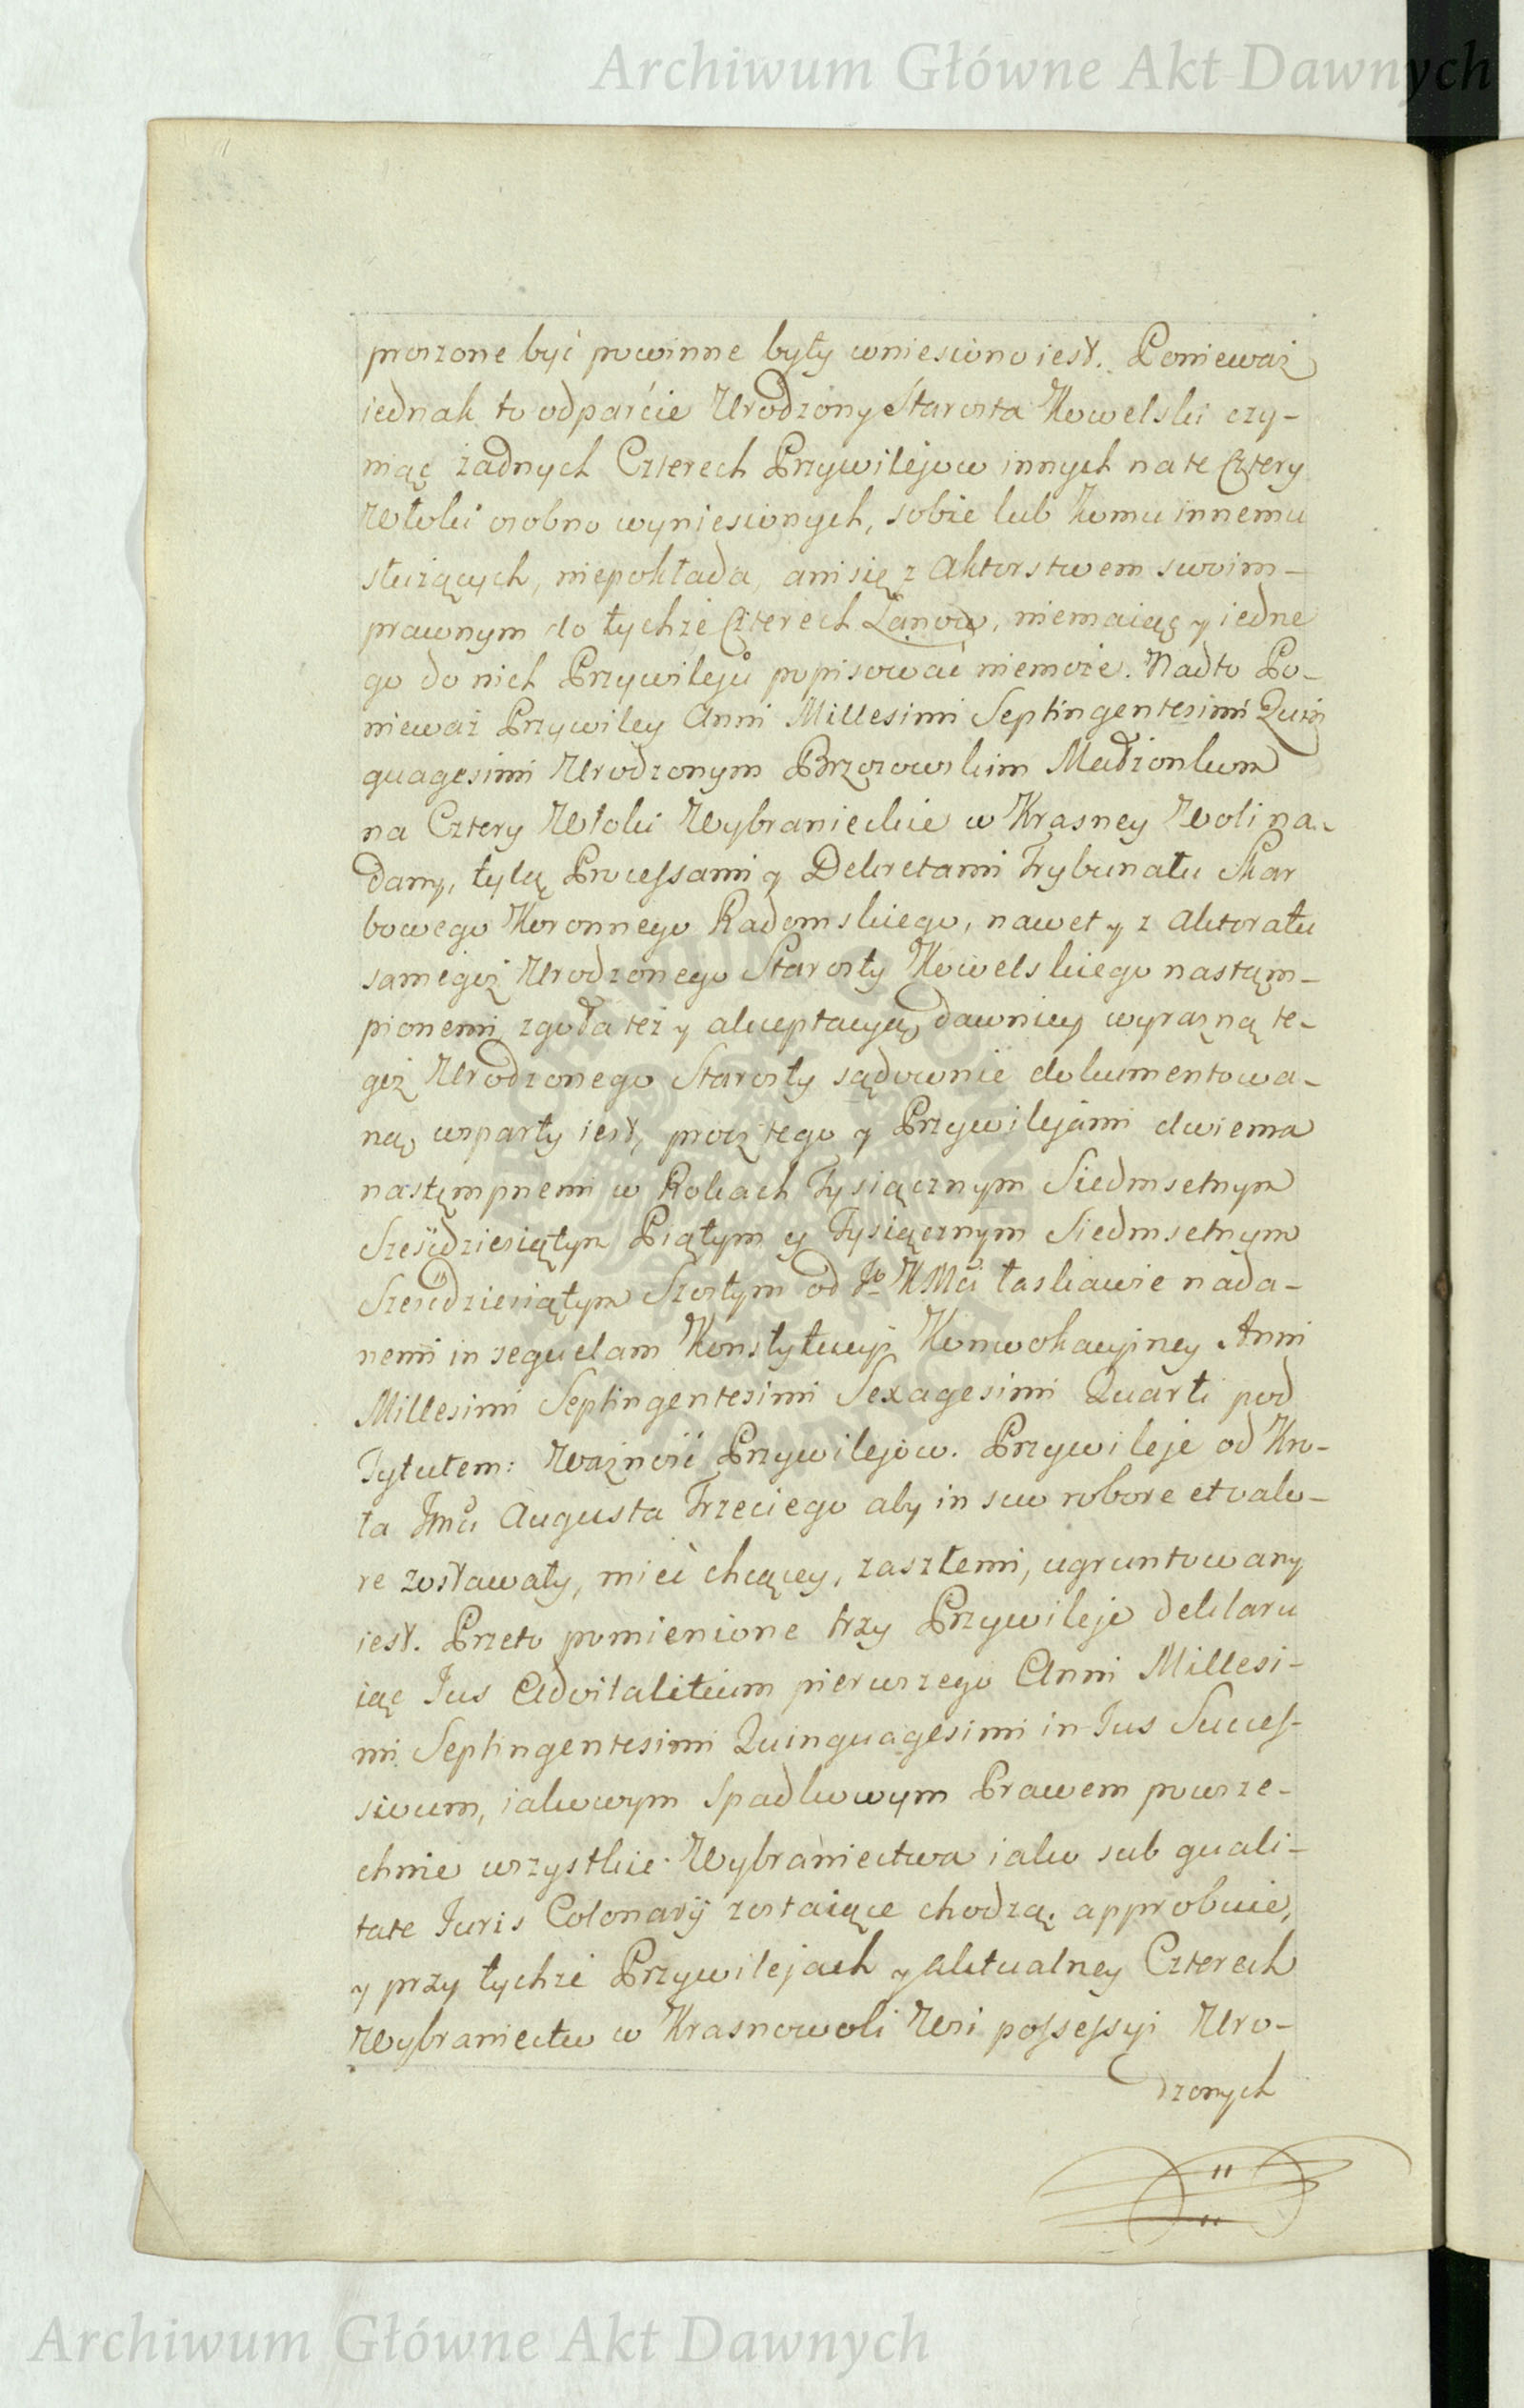 Archiwum Główne Akt Dawnych
proszone być powinne były wniesiono iest. Ponieważ
iednak to odparcie Urodzony Starosta Kowelski czy-
niąc żadnych Czterech Przywilejow innych na te Cztery
Włoki osobno wyniesionych, sobie lub komu innemu
służących, niepokłada, ani się z Aktorstwem swoim
prawnym do tychże Czterech Łanow, niemaiąc y iedne
go do nich Przywileju popisować niemoże. Nadto Po-
nieważ Przywiley Anni Millesimi Septingentesimi Quin
quagesimi Urodzonym Brzozowskim Małżonkom
na Cztery Włoki Wybranieckie w Krasney Woli na-
dany, tylą Processami y Dekretami Trybunału Skar
bowego Koronnego Radomskiego, nawet y z Aktoratu
samegoż Urodzonego Starosty Kowelskiego nastąm-
pionemi, zgoła też y akceptacyą dawniey wyrazną te-
goż Urodzonego Starosty sądownie dokumentowa-
ną wsparty iest, procz tego y Przywilejami dwiema
następnemi w Rokach Tysiącznym Siedmsetnym
Sześćdziesiątym Piątym y Tysiącznym Siedmsetnym
Sześćdziesiątym Szostym od Jo KMci łaskawie nada-
nemi in sequelam Konstytucyi Konwokacyiney Anni
Millesimi Septingentesimi Sexagesimi Quarti pod
Tytułem: Ważność Przywilejow. Przywileje od Kro-
la Jmci Augusta Trzeciego aby in suo robore et valo-
re zostawały, mieć chcącey, zaszłemi, ugruntowany
iest. Przeto pomienione trzy Przywileje deklaru
iąc Jus Advitalitium pierwszego Anni Millesi-
mi Septingentesimi Quinquagesimi in Jus Succes-
sivum, iakowym Spadkowym Prawem powsze-
chnie wszystkie Wybraniectwa iako sub quali-
tate Juris Colonarij zostaiące chodzą, approbuie,
y przy tychże Przywilejach y aktualney Czterech
Wybraniectw w Krasnowoli Wsi possessyi Uro-
dzonych
Archiwum Główne Akt Dawnych